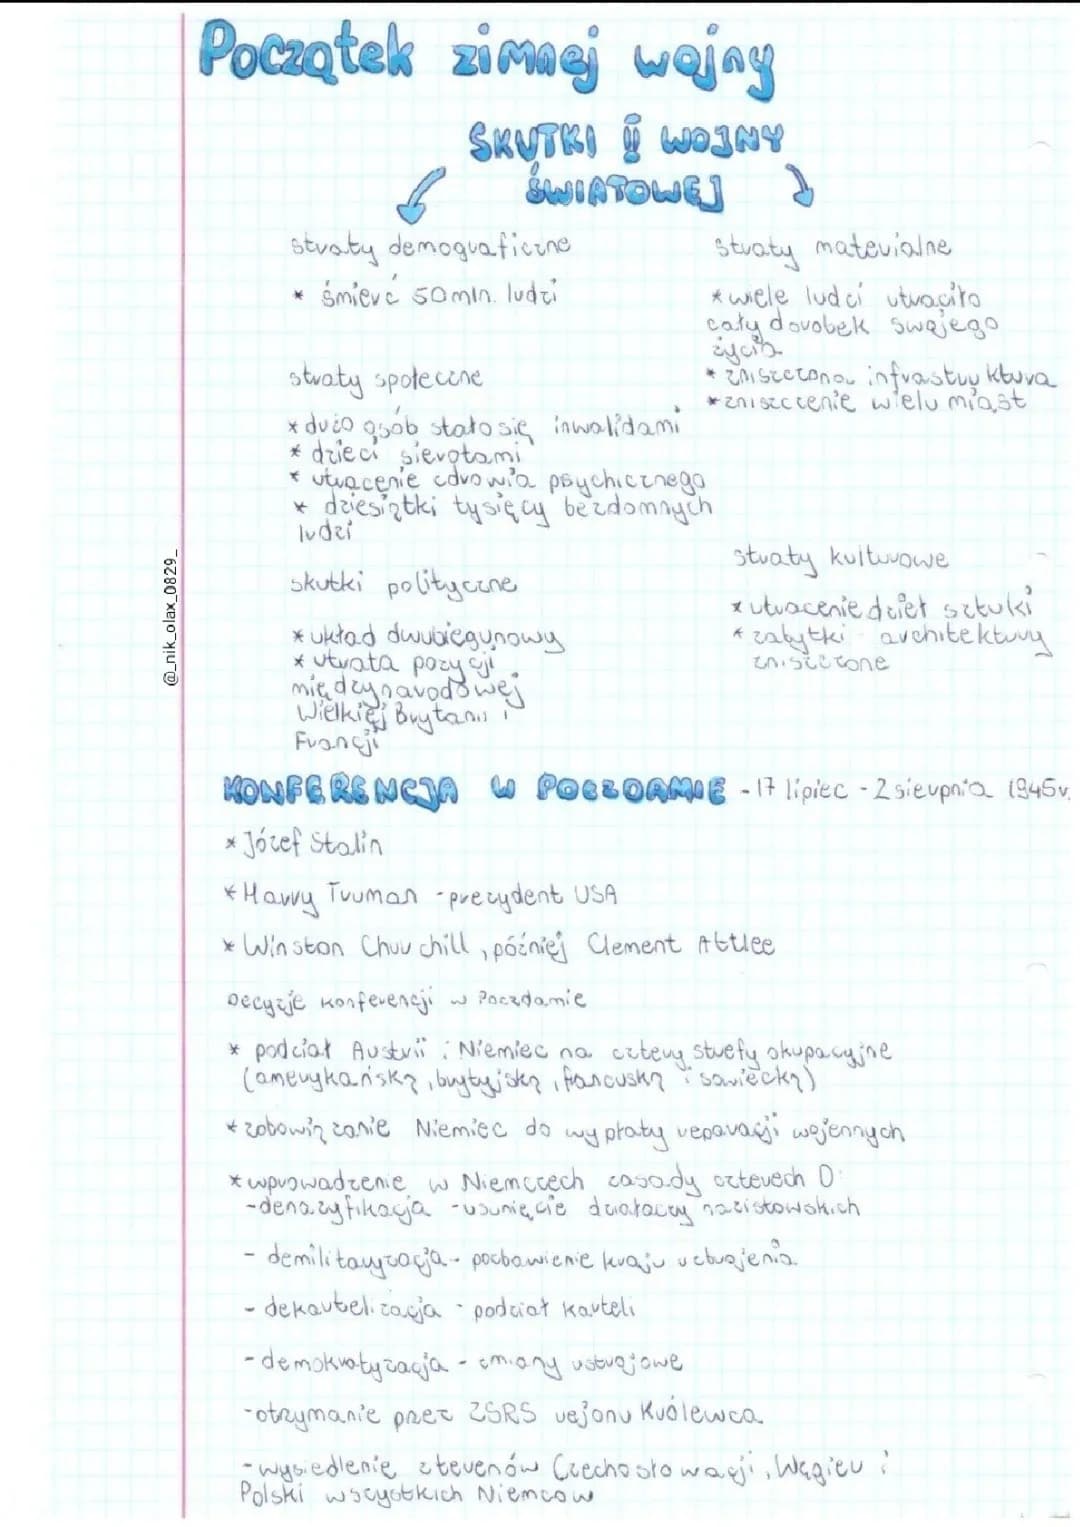 Początek zimnej wojny
SKUTKI II WOJNY
ŚWIATOWEJ
straty demograficzne
* śmierć 50mln. ludzi
straty społeczne
* dużo osób stało się inwalidami
* dzieci sierotami
* utracenie zdrowia psychicznego
* dziesiątki tysięcy bezdomnych
ludzi
skutki polityczne
* układ dwubiegunowy
* utrata pozycji
międzynarodowej
Wielkiej Brytanii i
Francji
straty materialne
* wiele ludzi utraciło
cały dorobek swojego
życia
* zniszczona infrastruktura
* zniszczenie wielu miast
straty kulturowe
* utracenie dzieł sztuki
* zabytki architektury
zniszczone
KONFERENCJA W POCZDAMIE - 17 lipiec - 2 sierpnia 1945r.
* Józef Stalin
* Harry Truman - prezydent USA
* Winston Churchill, później Clement Attlee
Decyzje konferencji w Poczdamie
* podział Austrii i Niemiec na cztery strefy okupacyjne
(amerykańską, brytyjską, francuską i sowiecką)
* zobowiązanie Niemiec do wypłaty reparacji wojennych
* wprowadzenie w Niemczech zasady czterech D:
- denazyfikacja - usunięcie działaczy nazistowskich
- demilitaryzacja - pozbawienie kraju uzbrojenia
- dekartelizacja - podział karteli
- demokratyzacja - zmiany ustrojowe
- otrzymanie przez ZSRS rejonu Królewca
- wysiedlenie z terenów Czechosłowacji, Węgier i
Polski wszystkich Niemców
@_nik_olax_0829_